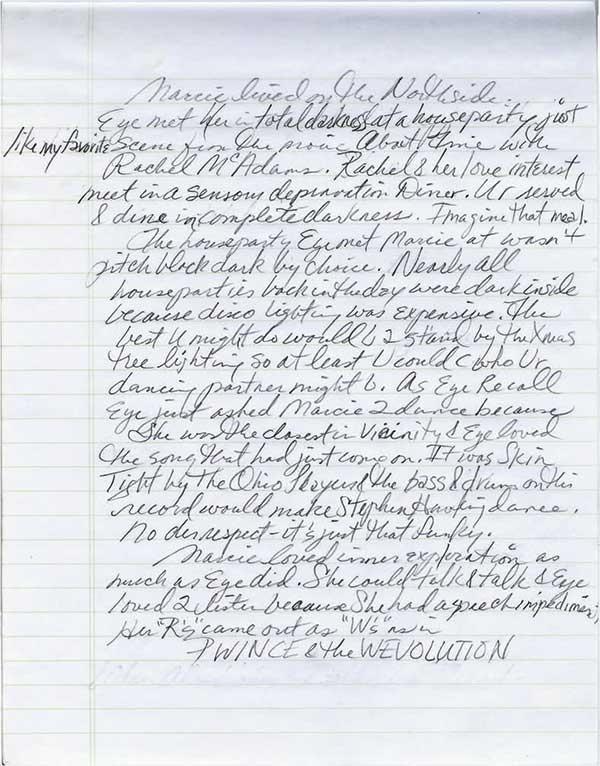 Marcie lived on the Northside.
Eye met her in total darkness at a houseparty just
like my favorite scene from the movie About Time with
Rachel McAdams. Rachel & her love interest
meet in a sensory deprivation Diner. Ur served
& dine in complete darkness. Imagine that meal.
The houseparty Eye met Marcie at wasn't
pitch black dark by choice. Nearly all
houseparties back in the day were dark inside
because disco lighting was expensive. The
best U might do would b 2 stand by the Xmas
tree lighting so at least U could c who Ur
dancing partner might b. As Eye Recall
Eye just asked Marcie 2 dance because
She was the closest in Vicinity & Eye loved
the song that had just come on. It was Skin
Tight by The Ohio Players & the bass & drums on this
record would make Stephen Hawking dance.
No disrespect - it's just that funky.
Marcie loved inner exploration as
much as Eye did. She could talk & talk & Eye
loved 2 listen because She had a speech impediment,
Her "R's" came out as "W's" as in
PWINCE & the WEVOLUTION